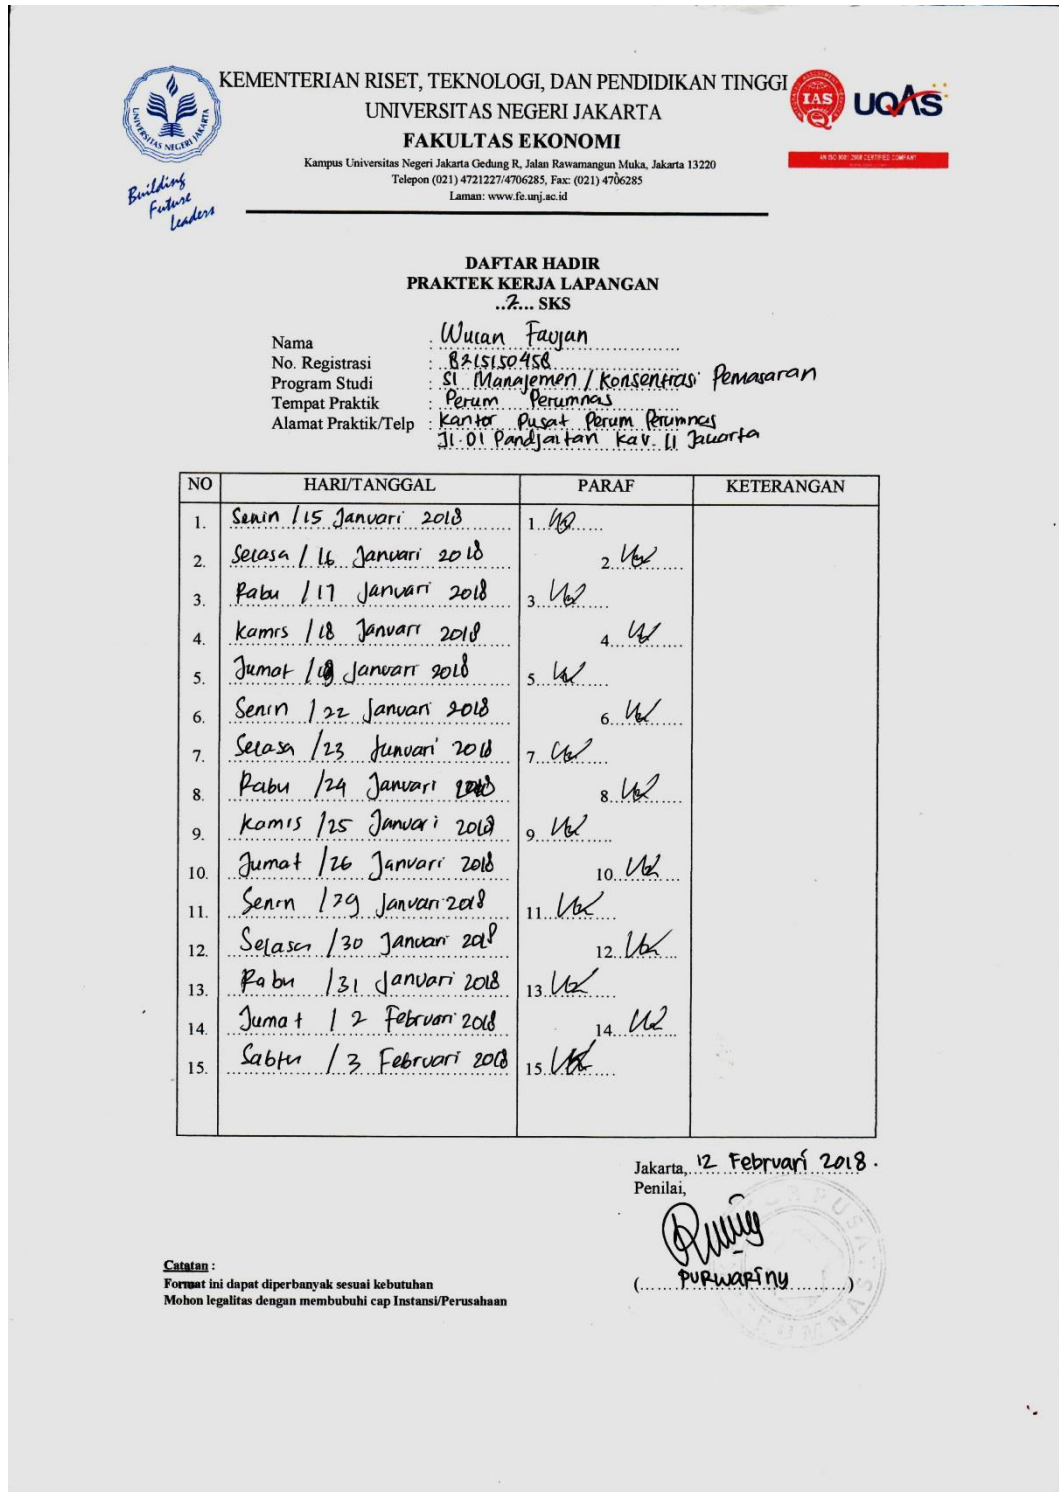 KEMENTERIAN RISET, TEKNOLOGI, DAN PENDIDIKAN TINGGI
UNIVERSITAS NEGERI JAKARTA
FAKULTAS EKONOMI
Kampus Universitas Negeri Jakarta Gedung R, Jalan Rawamangun Muka, Jakarta 13220
Telepon (021) 4721227/4706285, Fax: (021) 4706285
Laman: www.fe.unj.ac.id
UNIVERSITAS NEGERI JAKARTA
Building
Future
Leaders
IAS
UQAS
AN ISO 9001:2008 CERTIFIED COMPANY
DAFTAR HADIR
PRAKTEK KERJA LAPANGAN
..2... SKS
Nama : Wulan Fauzan
No. Registrasi : 8215150458
Program Studi : S1 Manajemen / Konsentrasi Pemasaran
Tempat Praktik : Perum Perumnas
Alamat Praktik/Telp : Kantor Pusat Perum Perumnas
Jl. DI Pandjaitan Kav. 11 Jakarta
NO HARI/TANGGAL PARAF KETERANGAN
1. Senin / 15 Januari 2018 1.
2. Selasa / 16 Januari 2018 2.
3. Rabu / 17 Januari 2018 3.
4. Kamis / 18 Januari 2018 4.
5. Jumat / 19 Januari 2018 5.
6. Senin / 22 Januari 2018 6.
7. Selasa / 23 Januari 2018 7.
8. Rabu / 24 Januari 2018 8.
9. Kamis / 25 Januari 2018 9.
10. Jumat / 26 Januari 2018 10.
11. Senin / 29 Januari 2018 11.
12. Selasa / 30 Januari 2018 12.
13. Rabu / 31 Januari 2018 13.
14. Jumat / 2 Februari 2018 14.
15. Sabtu / 3 Februari 2018 15.
Jakarta, 12 Februari 2018.
Penilai,
(PURWARINY)
Catatan :
Format ini dapat diperbanyak sesuai kebutuhan
Mohon legalitas dengan membubuhi cap Instansi/Perusahaan